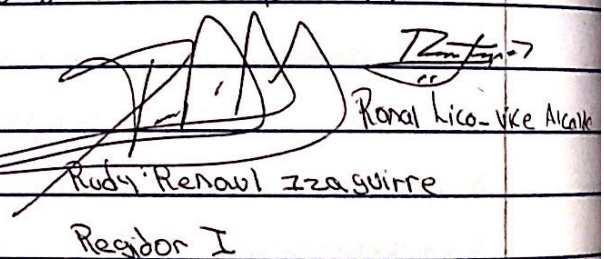 Ronal Lico - vice Alcalde
Rudy Renaul Izaguirre
Regidor I